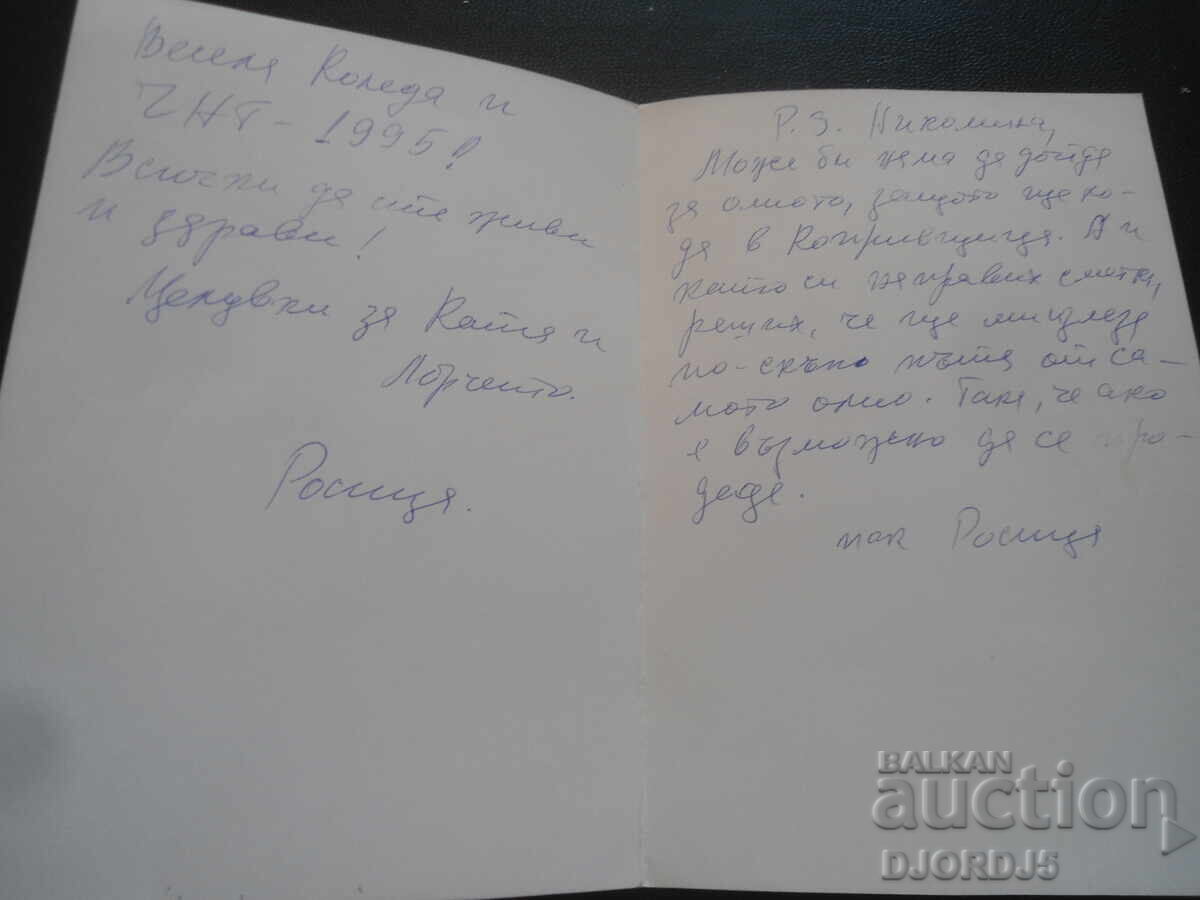 Весела Коледа и
ЧНГ - 1995!
Всички да сте живи
и здрави!
Целувки за Катя и
Лорчето.
Росица.
P.S. Николина,
Може би няма да дойда
за олиото, защото ще хо-
дя в Копривщица. А и
като си направих сметка,
реших, че ще ми излезе
по-скъпо пътя от са-
мото олио. Така, че ако
е възможно да се про-
даде.
пак Росица
BALKAN
auction
DJORDJ5